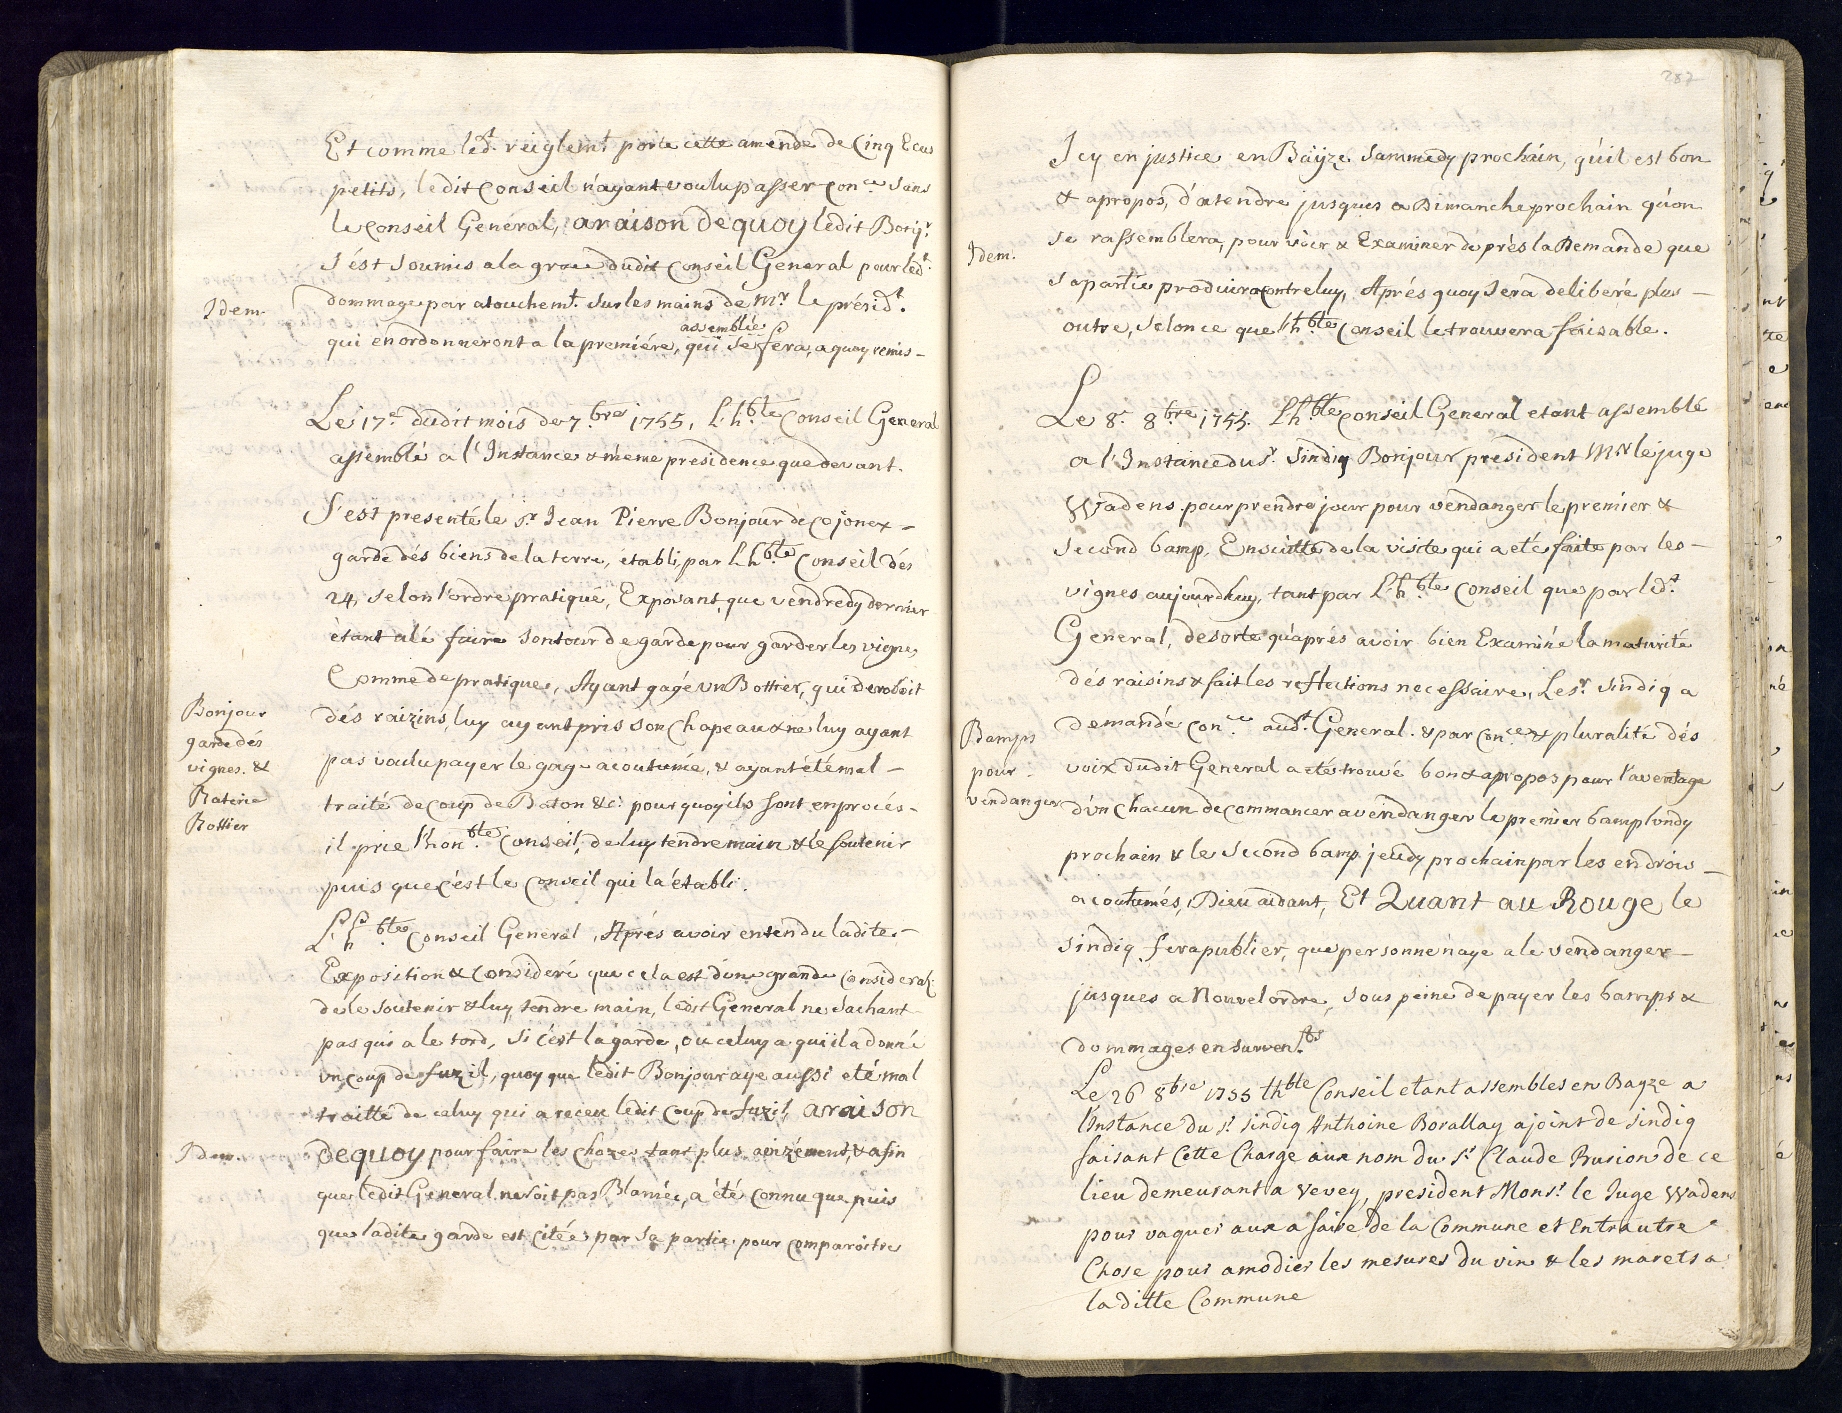 Et comme led.t reiglem.t porte cette amende de Cinq Ecus
petits, ledit Conseil n'ayant voulu passer con.ce sans
le Conseil General, araison dequoy ledit Bonj.r
s'ést soumis a la grace dudit Conseil General pour led.t
Idem.
dommage par atouchem.t sur les mains de M.r le présid.t
assemblée
qui en ordonneront a la premiére, qui se fera, a quoy remis -
Le 17.e dudit mois de 7.bre 1755, L'h.ble Conseil General
assemblé a l'Instance & méme presidence que devant.
S'est presenté le s.r Jean Pierre Bonjour de Cojonex -
garde dés biens de la terre, etabli, par l'h.ble Conseil dés
24, selon l'ordre pratiqué, Exposant, que vendredy dernier
étant alé faire son tour de garde pour garder les vignes
Comme de pratique, Ayant gagé un Bottier, qui deroboit
Bonjour
garde dés
vignes. &
Raterie
Bottier
dés raizins, luy ayant pris son Chapeau & ne luy ayant
pas voulu payer le gage acoutumée, & ayant été mal -
traité de Coup de Baton &c. pour quoy ils sont en procés -
il prie l'hon.ble Conseil, de luy tendre main & le soutenir
puis que c'ést le Conseil qui la établi.
L'h.ble Conseil General, Aprés avoir entendu ladite -
Exposition & Consideré que cela est d'une grande Considerat:
de le soutenir & luy tendre main, ledit General ne sachant
pas qui a le tord, si c'ést la garde, ou celuy a qui il a donné
un coup de fuzil, quoy que ledit Bonjour aye aussi eté mal
traitté de celuy qui a receu ledit coup de fuzil, araison
Idem.
Dequoy pour faire les chozes tant plus aizément, & afin
que ledit General ne soit pas Blamée, a été connu que puis
que ladite garde est citée par sa partie pour comparoitre
287
Icy en justice en Bäyze sammedy prochain, qu'il est bon
& apropos, d'atendre jusques a Dimanche prochain qu'on
Idem.
se rassemblera, pour voir & Examiner de prés la Demande que
sa partie produira contre luy, Aprés quoy sera deliberé plus -
outre, selon ce que l'h.ble Conseil le trouvera faisable.
Le 8.e 8.bre 1755. L'h.ble Conseil General etant assemblé
a l'Instance du s.r Sindiq Bonjour president M.r le juge
Wadens pour prendre jour pour vendanger le premier &
second bamp, Ensuitte de la visite qui a eté faite par les -
vignes aujourdhuy, tant par L'h.ble Conseil que par led.t
General, desorte qu'aprés avoir bien Examiné la maturité
dés raisins & fait les reflections necessaire, Le s.r Sindiq a
Bamps
pour
vendanger
demandé con.ce aud.t General. & par con.ce & pluralité dés
voix dudit General a etés trouvé bon & apropos pour l'aventage
d'un Chacun de commancer a vendanger le premier bamp lundy
prochain & le second bamp jeudy prochain par les endrois -
acoutumés, Dieu aidant, Et Quant au Rouge le
sindiq fera publier, que personne n'aye a le vendanger -
jusques a Nouvel ordre, sous peine de payer les bamps &
dommages en surven.ts
Le 26 8.bre 1755 l'h.ble Conseil etant assembles en Bayze a
l'instance du s.r sindiq Anthoine Borallay ajoint de sindiq
faisant Cette Charge aux nom du s.r Claude Busion de ce
lieu demeurant a Vevey, president Mons.r le Juge Wadens
pour vaquer aux a faire de la Commune et Entrautre
Chose pour amodier les mesures du vin & les marets a
laditte Commune